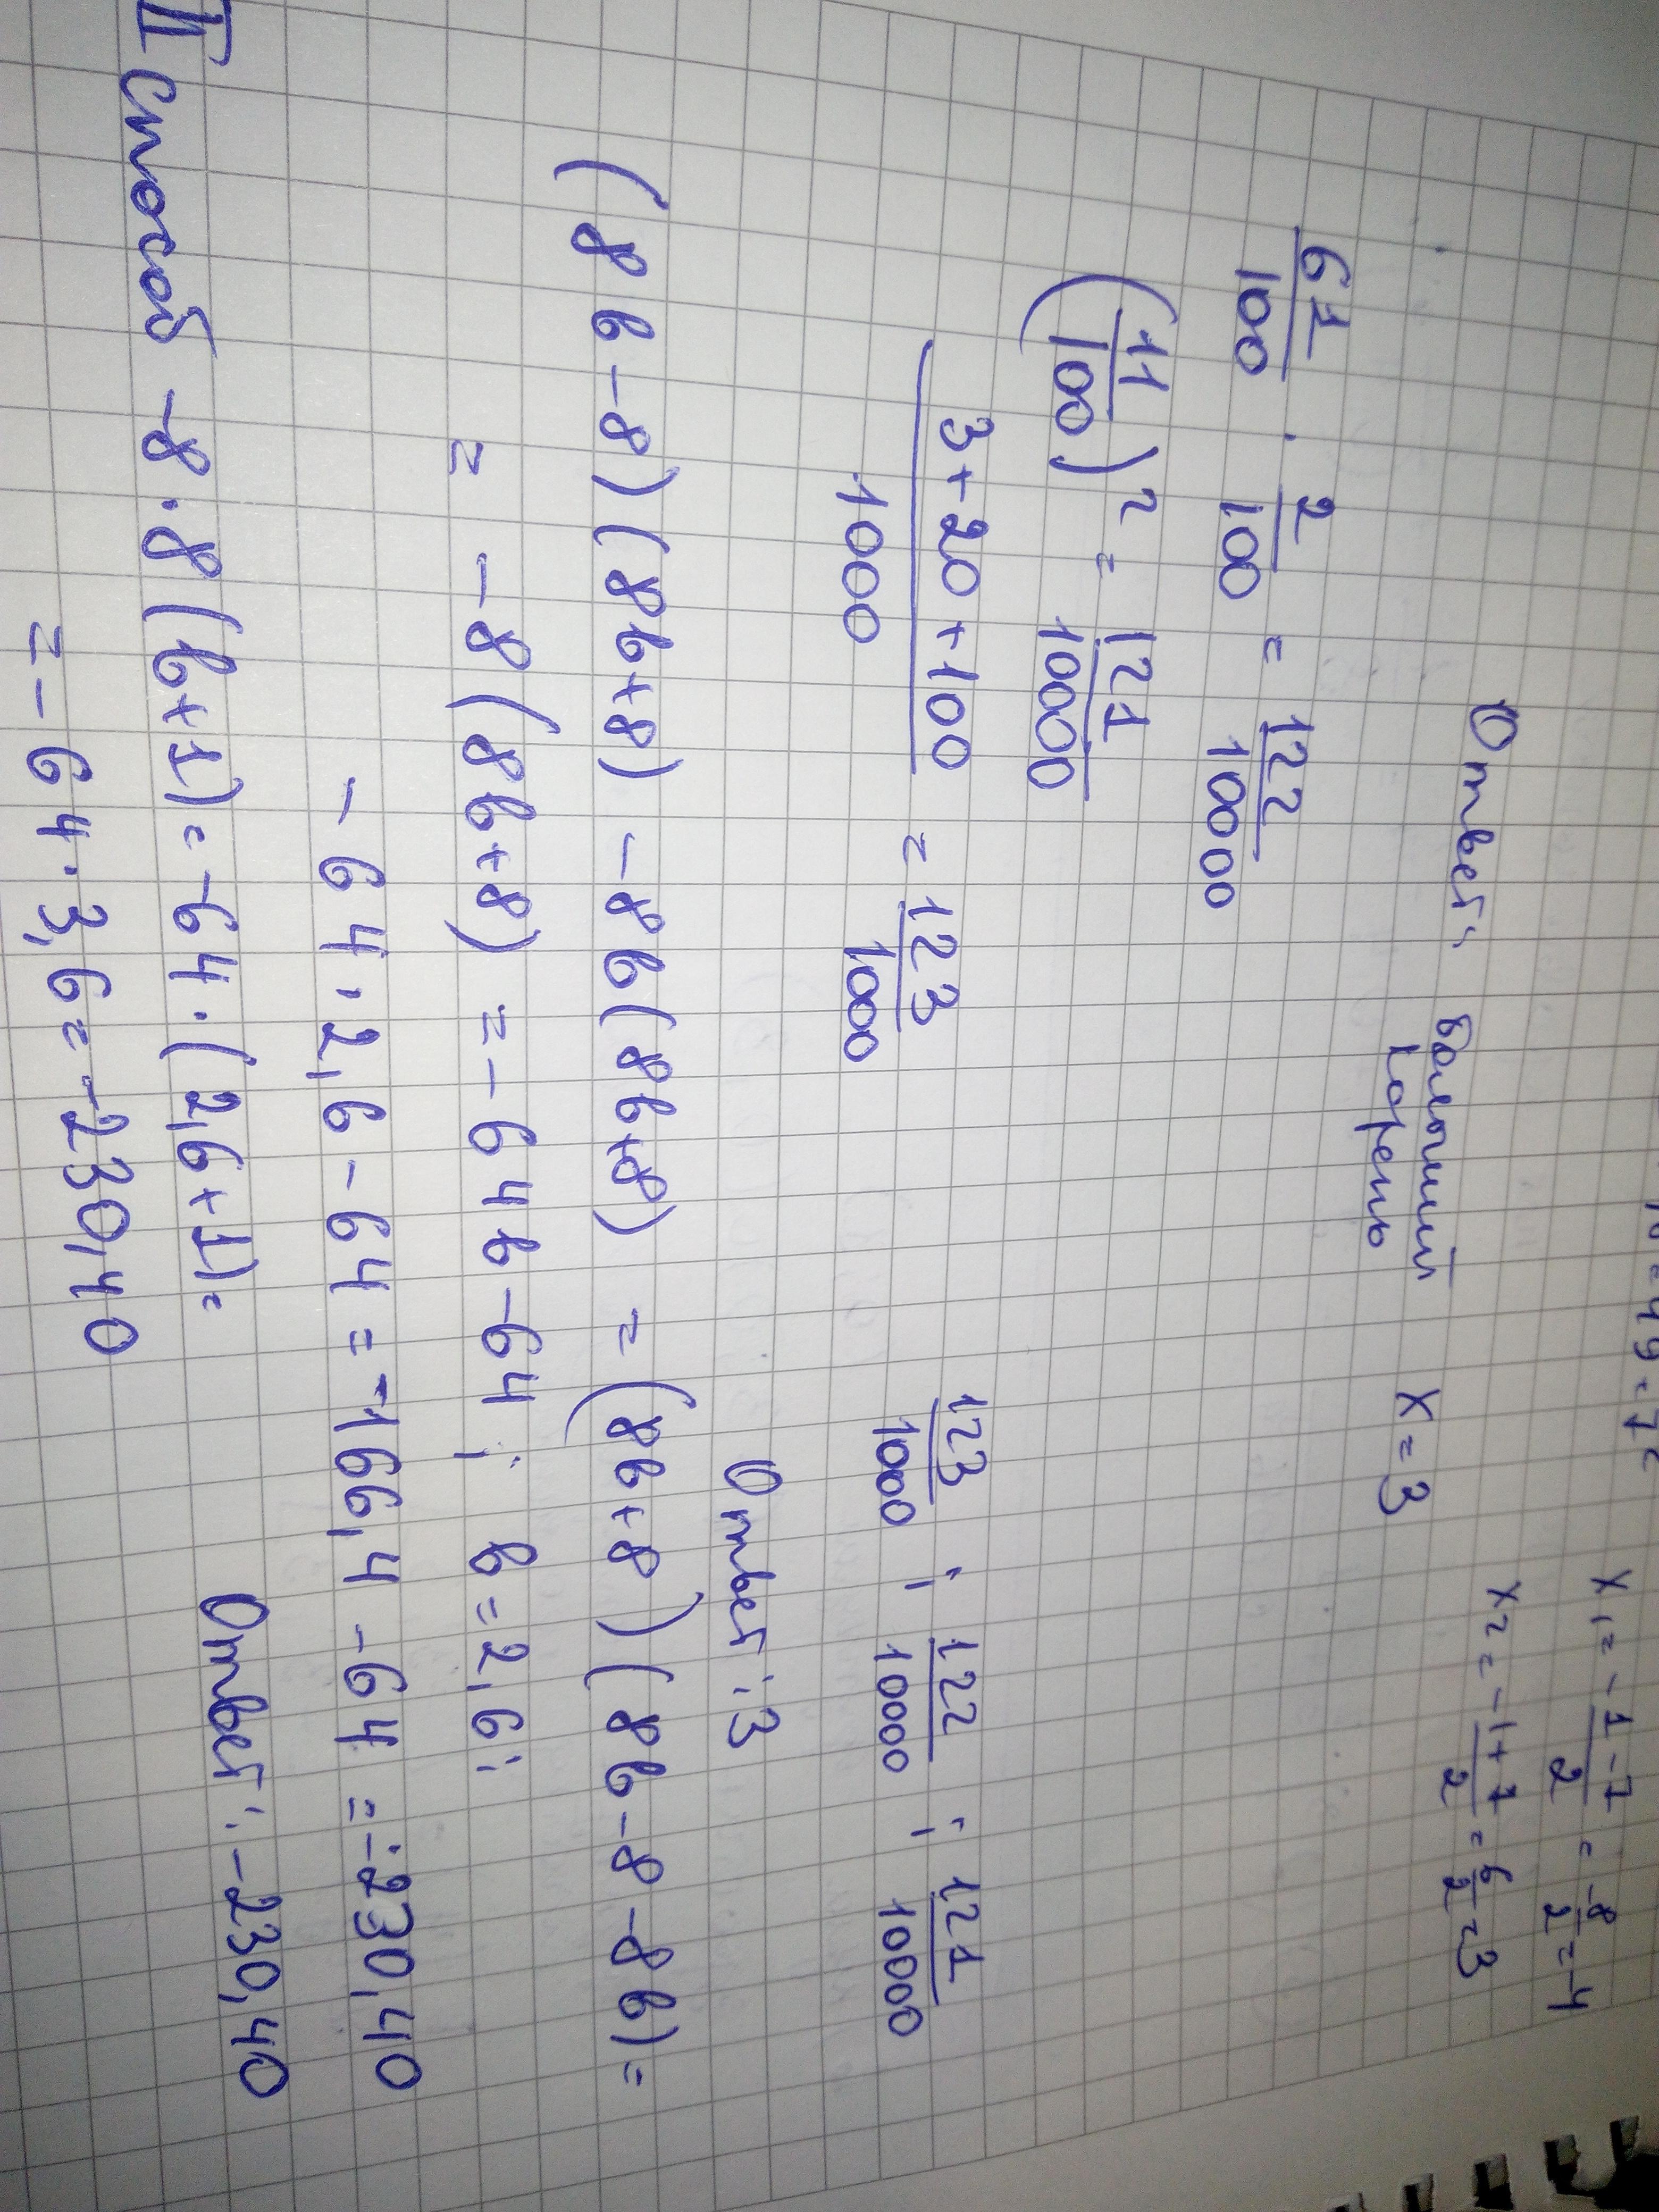 x₁ = -1-7/2 = -8/2 = -4
x₂ = -1+7/2 = 6/2 = 3
Ответ: больший корень x = 3
61/100 · 2/100 = 122/10000
(11/100)² = 121/10000
3+20+100/1000 = 123/1000
123/1000 ; 122/10000 ; 121/10000
Ответ: 3
(8в-8)(8в+8) -8в(8в+8) = (8в+8)(8в-8-8в) =
= -8(8в+8) = -64в-64 ; в = 2,6:
-64·2,6-64 = -166,4-64 = -230,40
Ответ: -230,40
II способ -8·8(в+1) = -64·(2,6+1) =
= -64·3,6 = -230,40